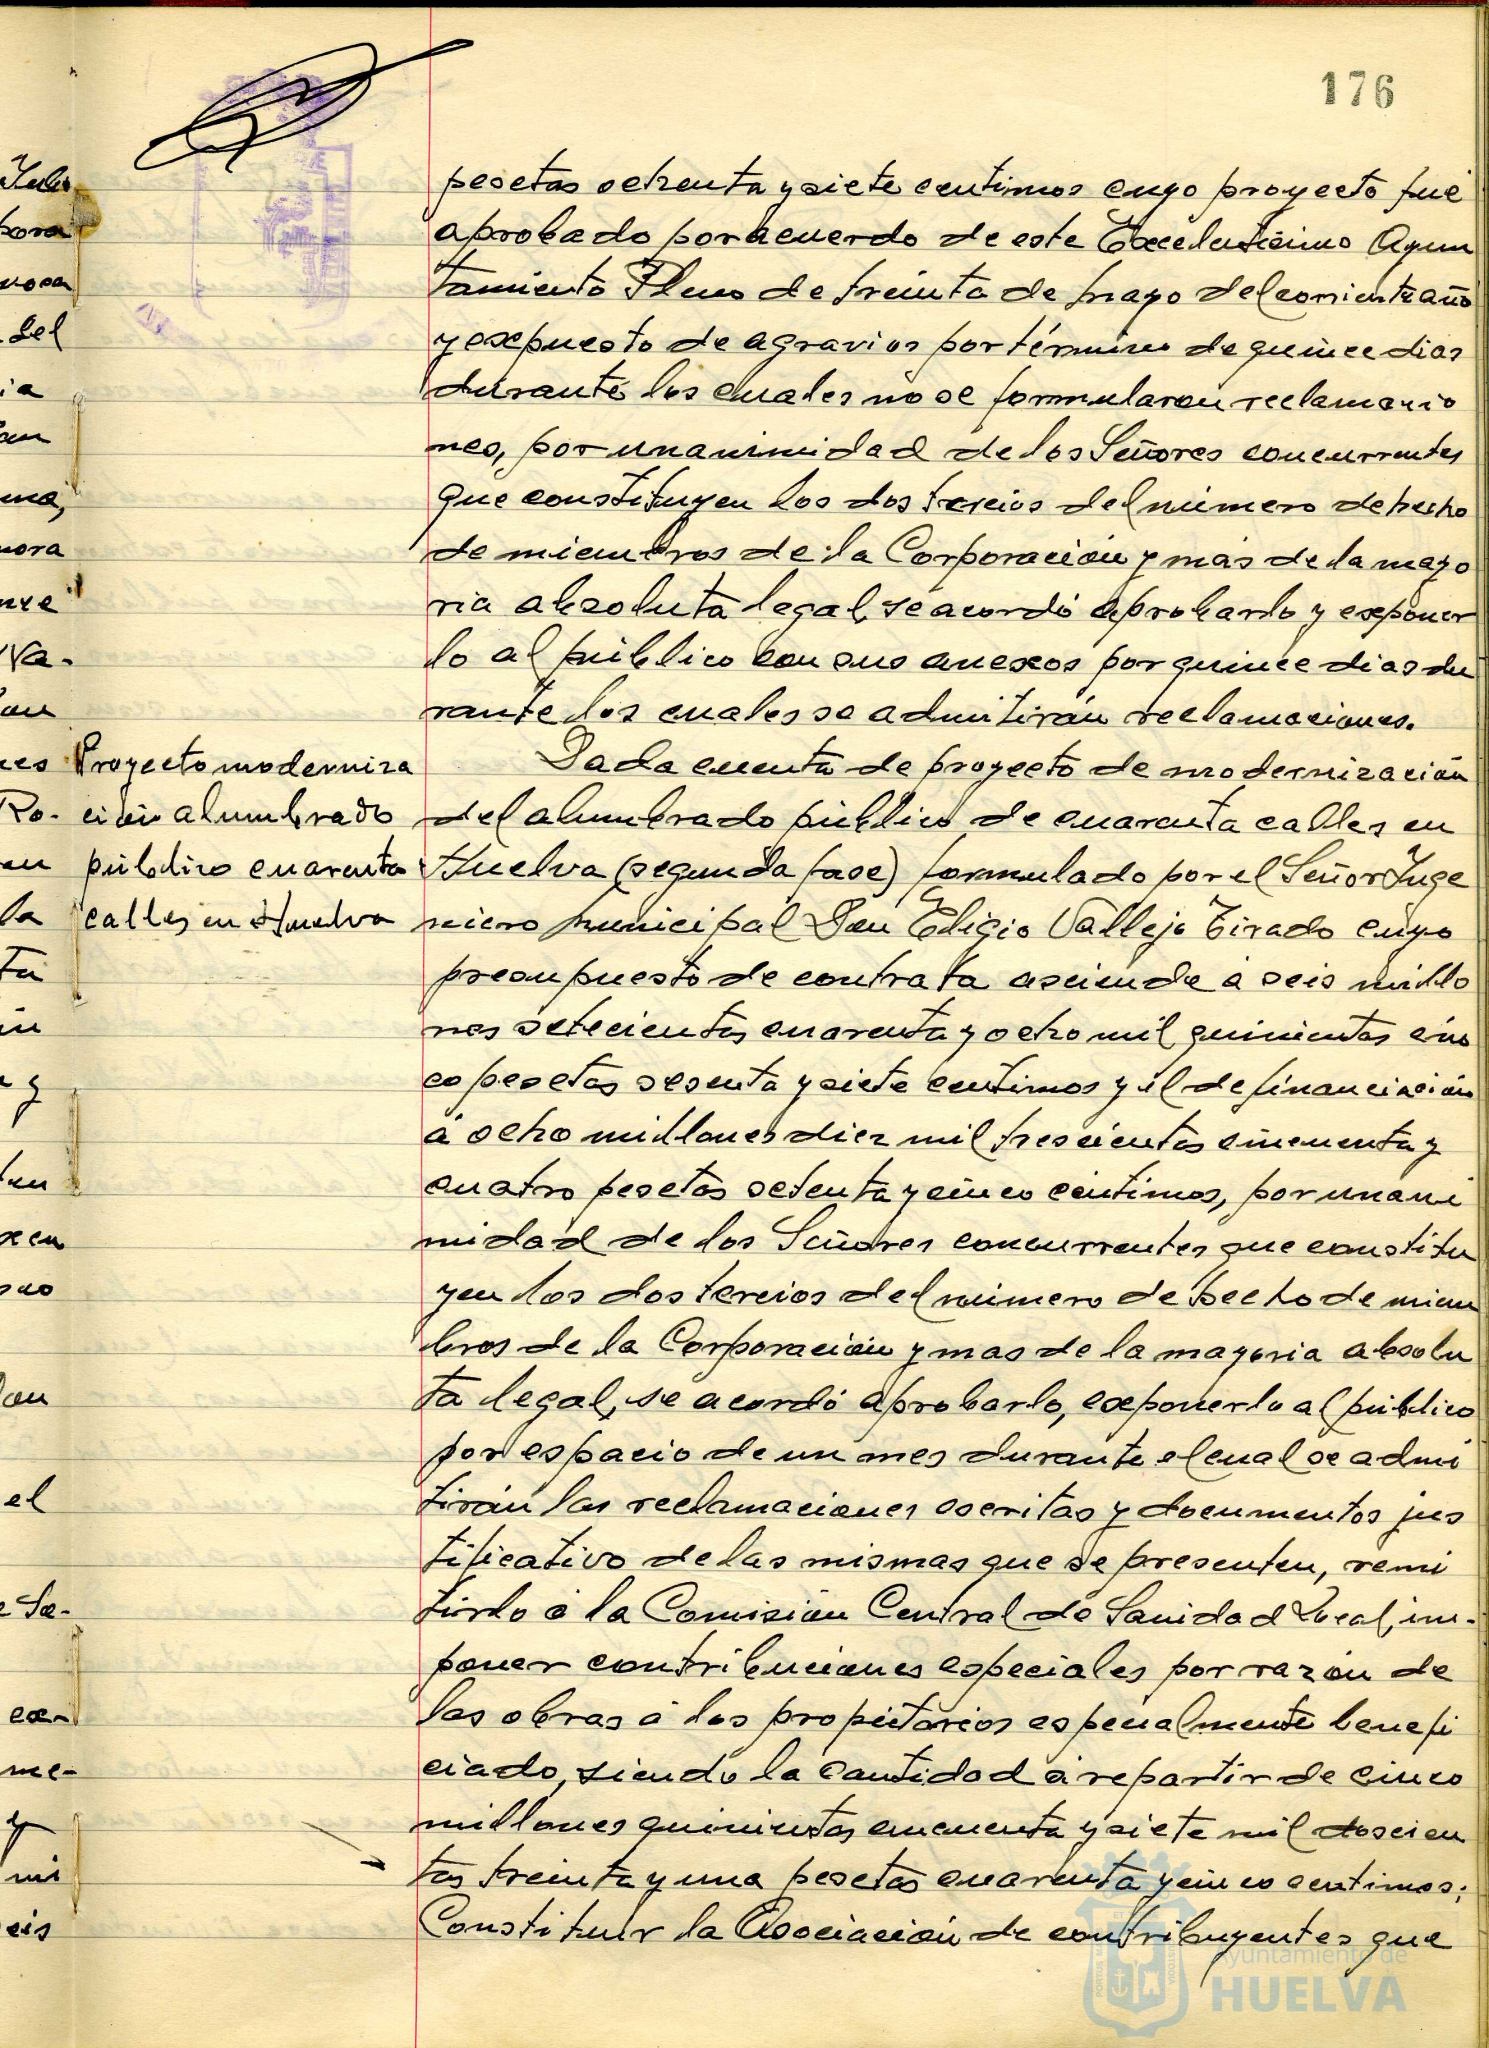 176
pesetas ochenta y siete centimos cuyo proyecto fué
aprobado por acuerdo de este Excelentisimo Ayun
tamiento Pleno de treinta de mayo del corriente año
y expuesto de agravios por término de quince dias
durante los cuales no se formularon reclamacio
nes, por unanimidad de los Señores concurrentes
que constituyen los dos tercios del número de hecho
de miembros de la Corporación y más de la mayo
ria absoluta legal, se acordó aprobarlo y exponer
lo al público con sus anexos por quince dias du
rante los cuales se admitirán reclamaciones.
Proyecto moderniza
ción alumbrado
público cuarenta
calles en Huelva
Dada cuenta de proyecto de modernización
del alumbrado público de cuarenta calles en
Huelva (segunda fase) formulado por el Señor Inge
niero municipal Don Eligio Vallejo Tirado cuyo
presupuesto de contrata asciende á seis millo
nes setecientas cuarenta y ocho mil quinientas cin
co pesetas sesenta y siete centimos y el de financiación
á ocho millones diez mil trescientas cincuenta y
cuatro pesetas setenta y cinco céntimos, por unani
midad de los Señores concurrentes que constitu
yen los dos tercios del número de hecho de miem
bros de la Corporación y mas de la mayoria absolu
ta legal, se acordó aprobarlo, exponerlo al público
por espacio de un mes durante el cual se admi
tirán las reclamaciones escritas y documentos jus
tificativo de las mismas que se presenten, remi
tirlo á la Comisión Central de Sanidad Local, im-
poner contribuciones especiales por razón de
las obras á los propietarios especialmente benefi
ciado, siendo la cantidad á repartir de cinco
millones quinientas cincuenta y siete mil doscien
tas treinta y una pesetas cuarenta y cinco centimos;
Constituir la Asociación de contribuyentes que
Ayuntamiento de
HUELVA